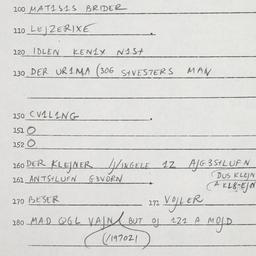 100 MAT1S1S BRIDER
110 LEJZERIXE
120 IDLEN KEN1X N1St
130 DER UR1MA (306 S1VESTERS MAN
150 CV1L1NG
151 O
152 O
160 DER KLEJNER /J/INGELE 1Z AJG3S1LUFN
(DUS KLEJN
161 ANTS1LUFN G3VORN
170 BESER 171 VOJLER
180 MAD QGL VAJN BUT OJ 121 A MOJD
(/197021